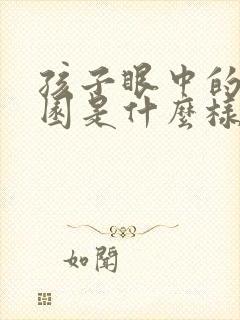 孩子眼中的
園是什麼樣
如聞